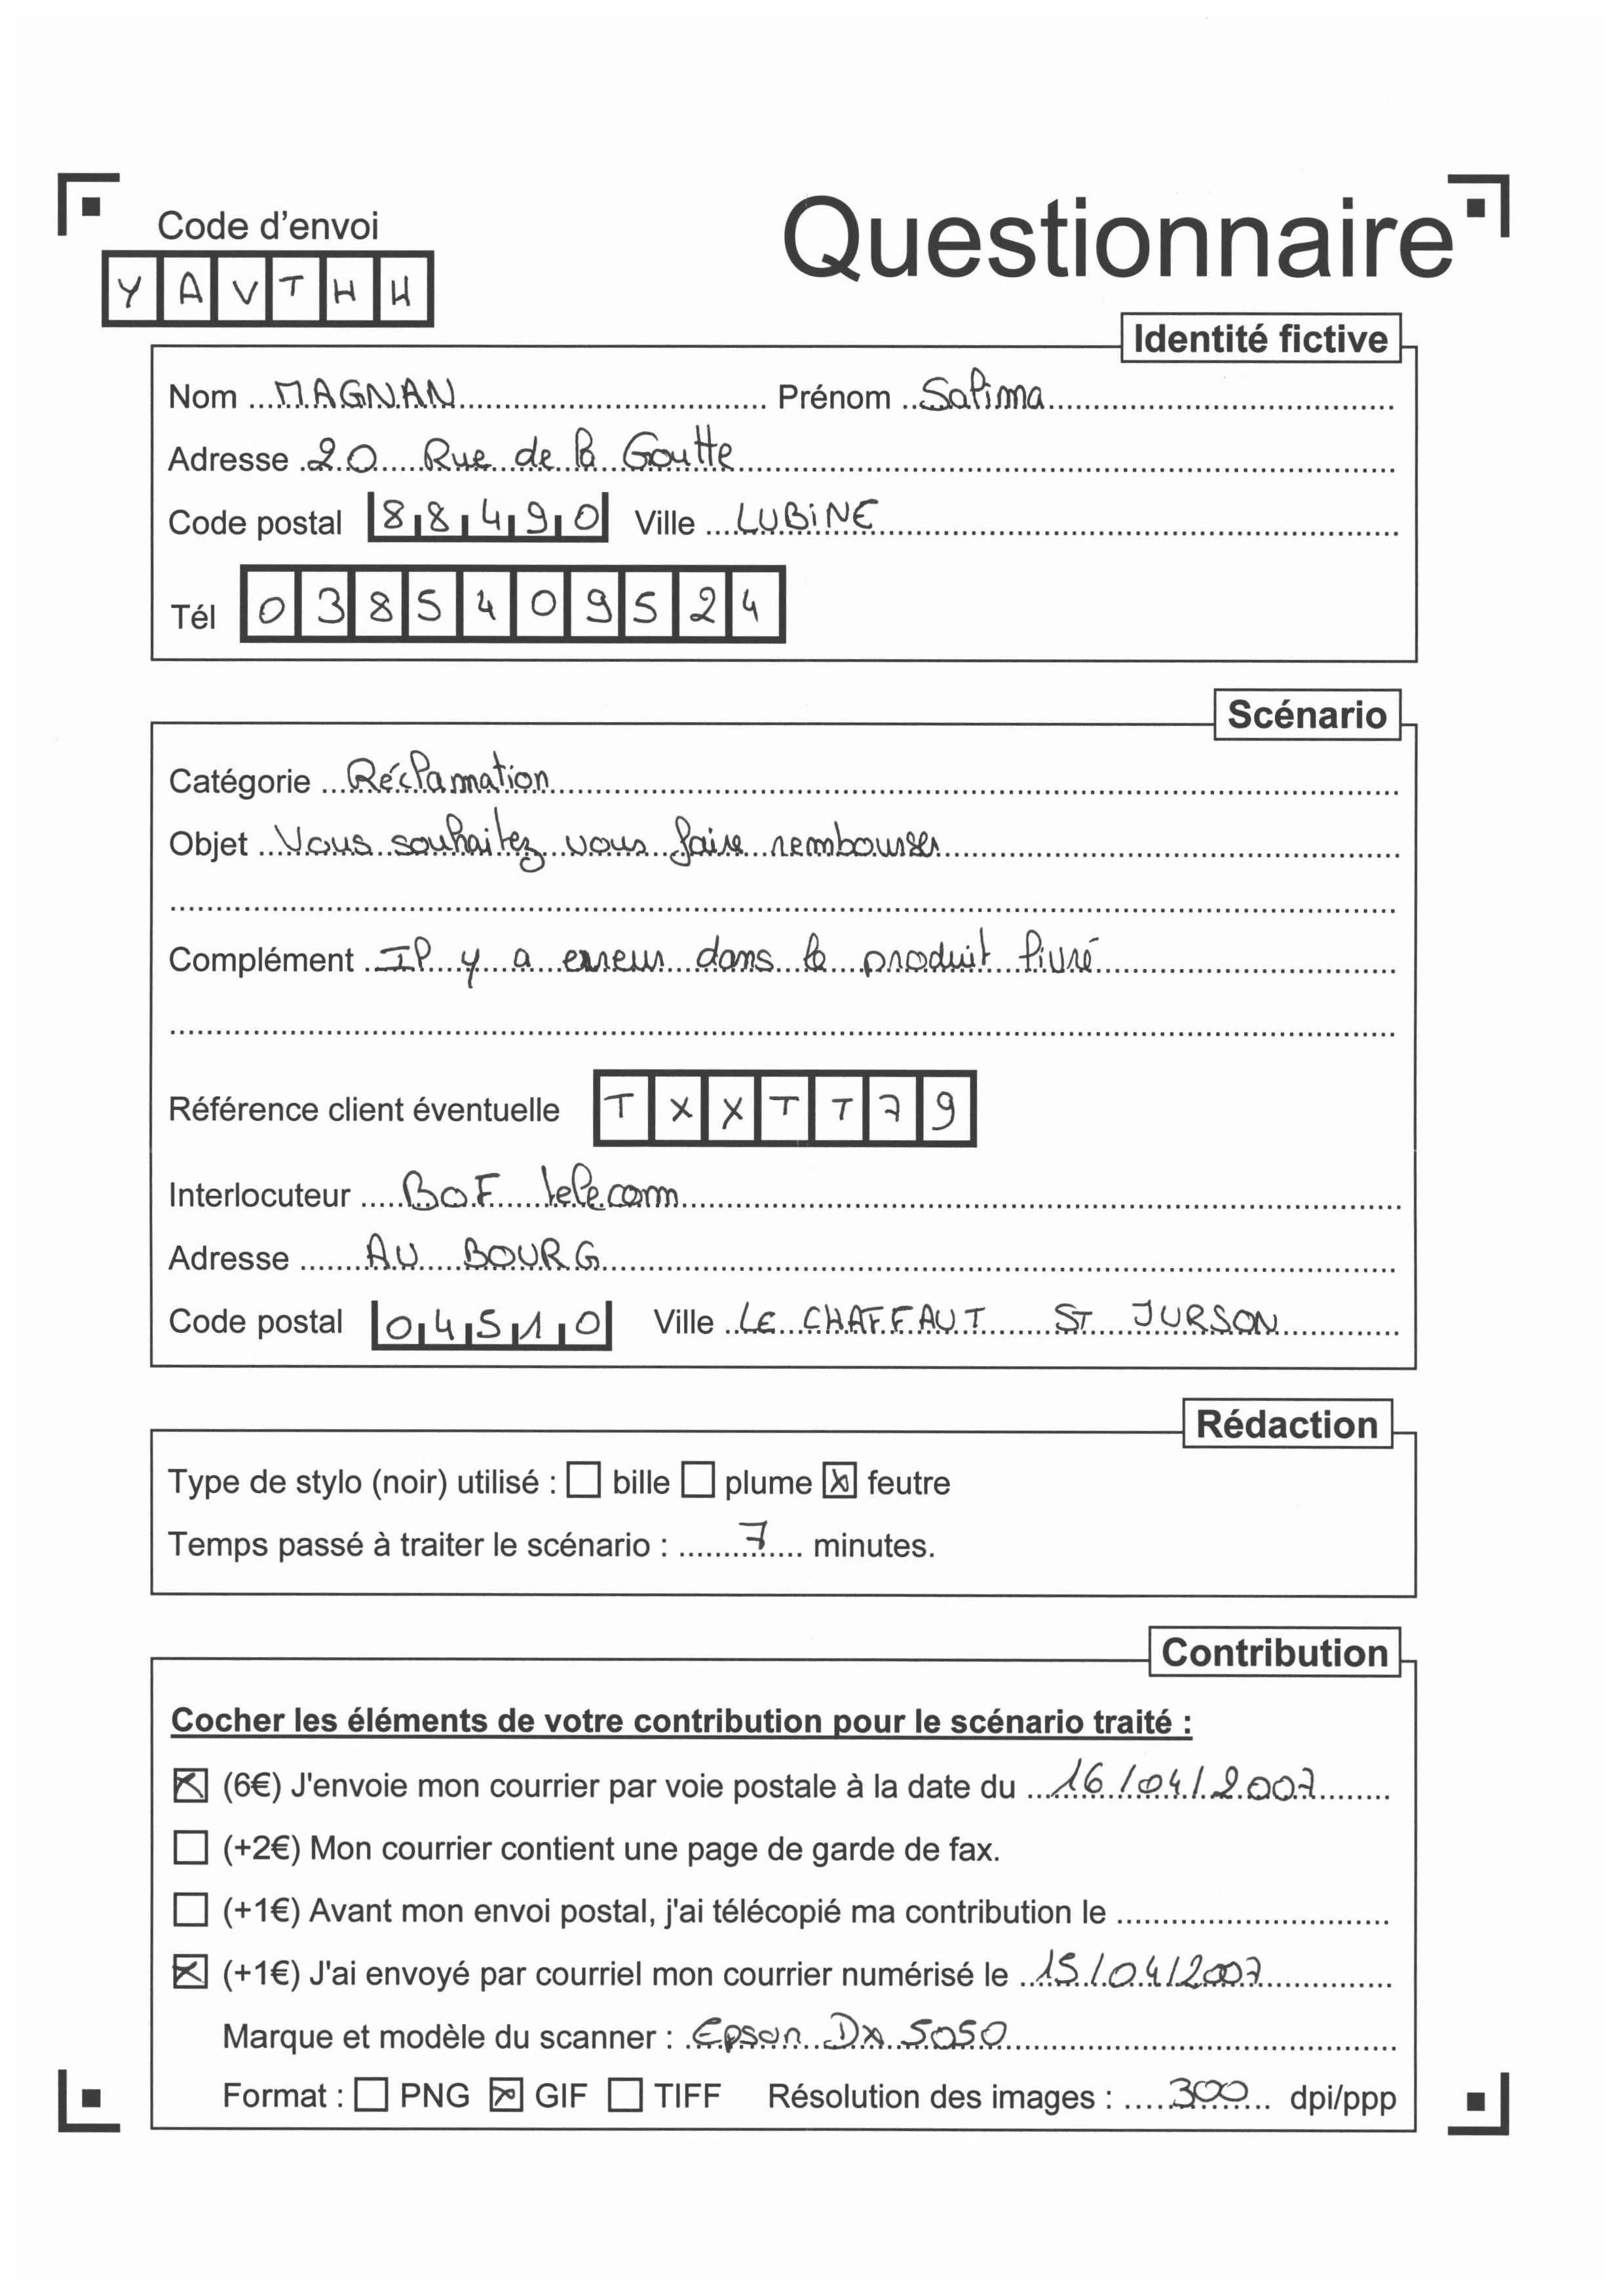 Code d'envoi
Questionnaire
Y A V T H H
Identité fictive
Nom MAGNAN Prénom Salima
Adresse 20 Rue de la Goutte
Code postal 88490 Ville LUBINE
Tél 0385409524
Scénario
Catégorie Réclamation
Objet Vous souhaitez vous faire rembourser
Complément Il y a erreur dans le produit livré
Référence client éventuelle TXXTT79
Interlocuteur BOF telecom
Adresse AU BOURG
Code postal 04510 Ville LE CHAFFAUT ST JURSON
Rédaction
Type de stylo (noir) utilisé : ☐ bille ☐ plume ☒ feutre
Temps passé à traiter le scénario : 7 minutes.
Contribution
Cocher les éléments de votre contribution pour le scénario traité :
☒ (6€) J'envoie mon courrier par voie postale à la date du 16/04/2007
☐ (+2€) Mon courrier contient une page de garde de fax.
☐ (+1€) Avant mon envoi postal, j'ai télécopié ma contribution le
☒ (+1€) J'ai envoyé par courriel mon courrier numérisé le 15/04/2007
Marque et modèle du scanner : Epson Dx 5050
Format : ☐ PNG ☒ GIF ☐ TIFF Résolution des images : 300 dpi/ppp